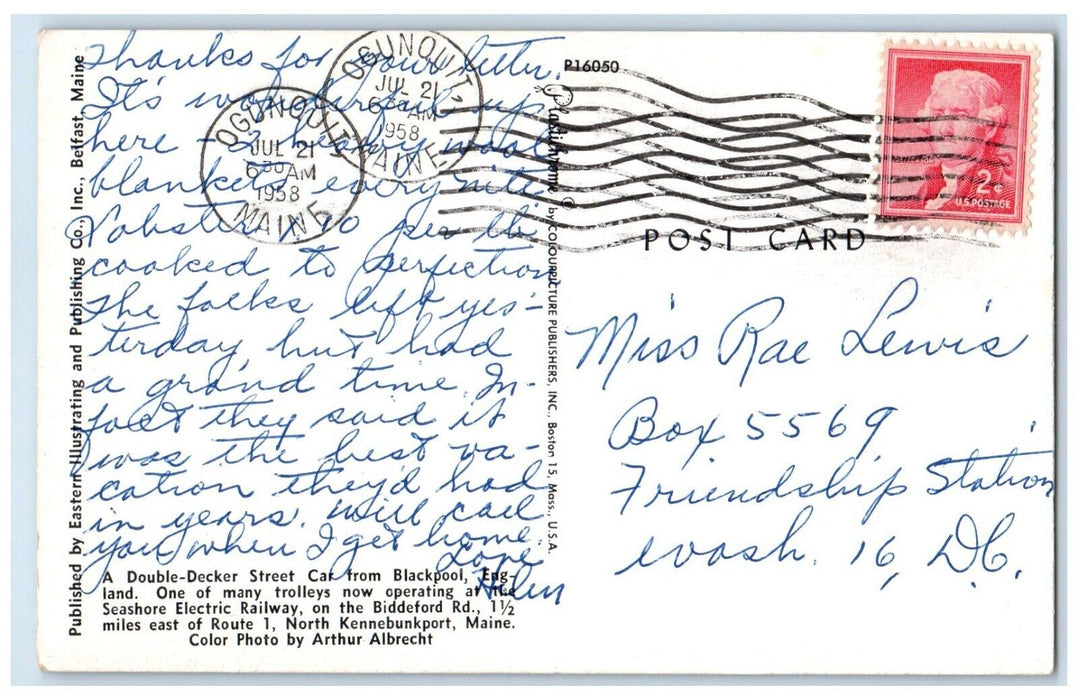 Thanks for your letter.
It's wonderful up
here - 2 heavy wool
blankets every nite.
Lobster 70 per lb
cooked to perfection
The folks left yes-
terday, but had
a grand time. In-
fact they said it
was the best va-
cation they'd had
in years. Will call
you when I get home.
Love
Helen
A Double-Decker Street Car from Blackpool, Eng-
land. One of many trolleys now operating at the
Seashore Electric Railway, on the Biddeford Rd., 1½
miles east of Route 1, North Kennebunkport, Maine.
Color Photo by Arthur Albrecht
Published by Eastern Illustrating and Publishing Co., Inc., Belfast, Maine
OGUNQUIT,
JUL 21
6 30 AM
1958
MAINE
OGUNQUIT,
JUL 21
6 AM
1958
MAINE
P16050
Plastichrome ® by COLOURPICTURE PUBLISHERS, INC., Boston 15, Mass., U.S.A.
2¢
U.S. POSTAGE
POST CARD
Miss Rae Lewis
Box 5569
Friendship Station
Wash. 16, D.C.